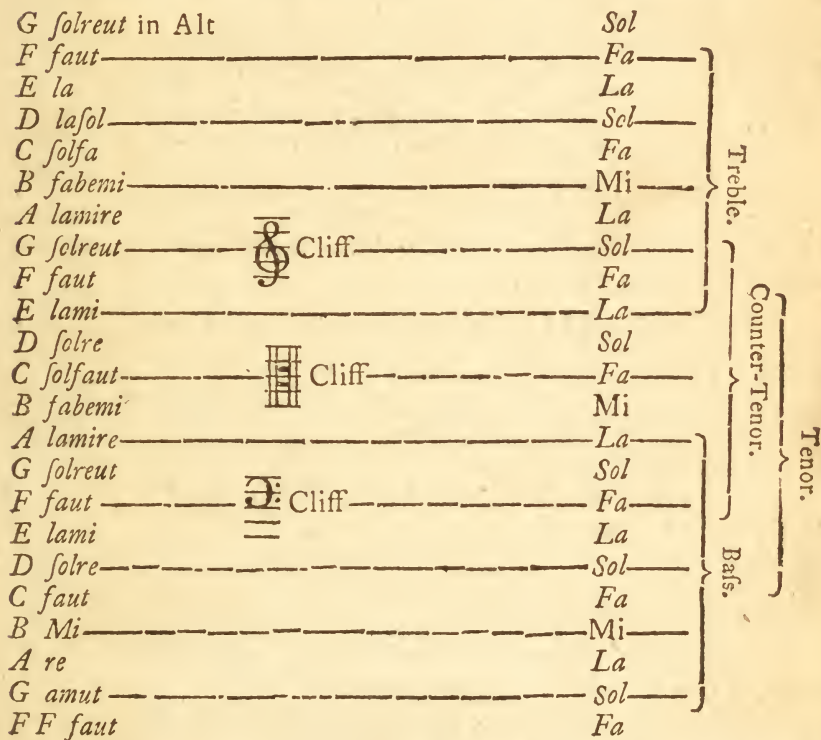 G ſolreut in Alt Sol
F faut Fa
E la La
D laſol Sol
C ſolfa Fa
B fabemi Mi
A lamire La
G ſolreut Cliff Sol
F faut Fa
E lami La
D ſolre Sol
C ſolfaut Cliff Fa
B fabemi Mi
A lamire La
G ſolreut Sol
F faut Cliff Fa
E lami La
D ſolre Sol
C faut Fa
B Mi Mi
A re La
G amut Sol
F F faut Fa
Treble.
Counter-Tenor.
Tenor.
Baſs.